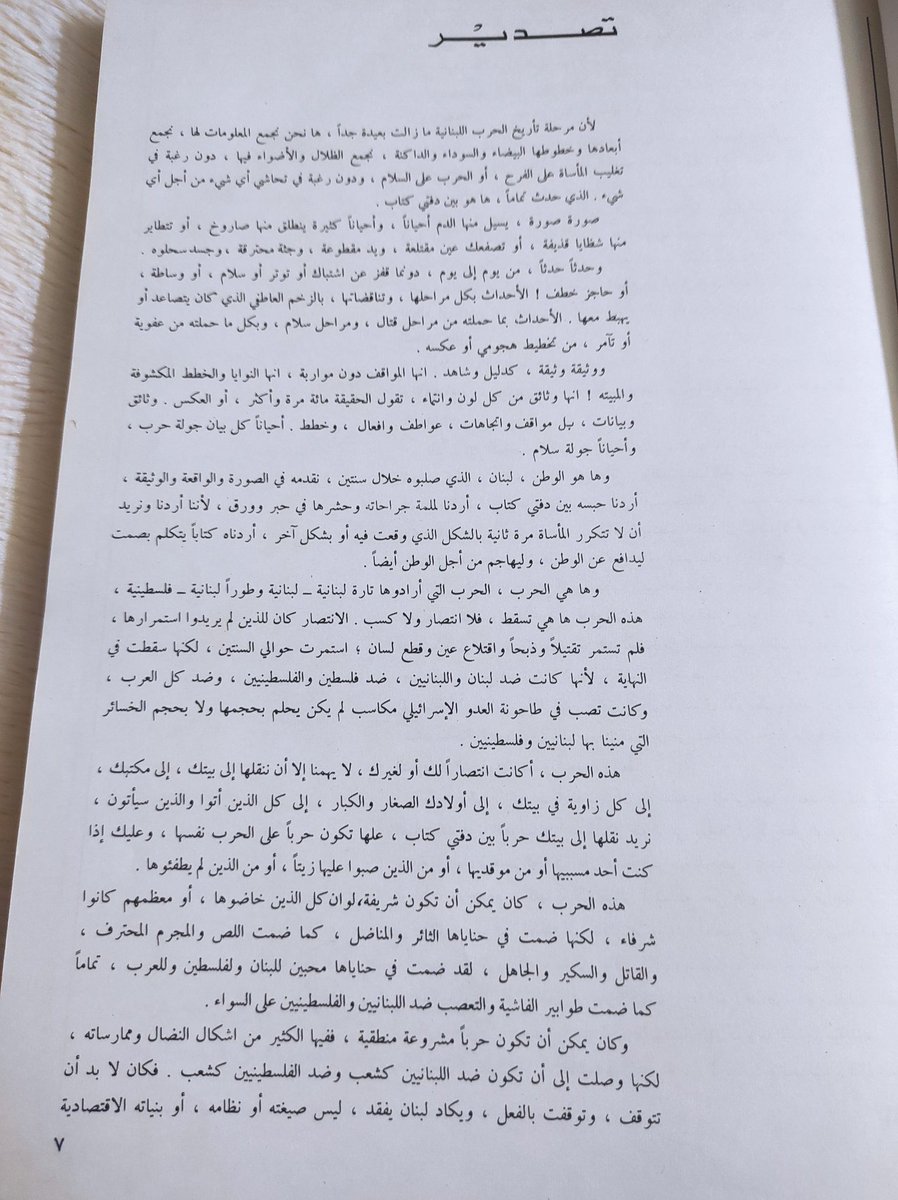 تصديْر
لأن مرحلة تأريخ الحرب اللبنانية ما زالت بعيدة جداً ، ها نحن نجمع المعلومات لها ، نجمع
أبعادها وخطوطها البيضاء والسوداء والداكنة ، نجمع الظلال والأضواء فيها ، دون رغبة في
تغليب المأساة على الفرح ، أو الحرب على السلام ، ودون رغبة في تحاشي أي شيء من أجل أي
شيء . الذي حدث تماماً ، ها هو بين دفتي كتاب .
صورة صورة ، يسيل منها الدم أحياناً ، وأحياناً كثيرة ينطلق منها صاروخ ، أو تتطاير
منها شظايا قذيفة ، أو تصفعك عين مقتلعة ، ويد مقطوعة ، وجثة محترقة ، وجسد سحلوه .
وحدثاً حدثاً ، من يوم إلى يوم ، دونما قفز عن اشتباك أو توتر أو سلام ، أو وساطة ،
أو حاجز خطف ! الأحداث بكل مراحلها ، وتناقضاتها ، بالزخم العاطفي الذي كان يتصاعد أو
يهبط معها . الأحداث بما حملته من مراحل قتال ، ومراحل سلام ، وبكل ما حملته من عفوية
أو تآمر ، من تخطيط هجومي أو عكسه .
ووثيقة وثيقة ، كدليل وشاهد . انها المواقف دون مواربة ، انها النوايا والخطط المكشوفة
والمبيته ! انها وثائق من كل لون وانتماء ، تقول الحقيقة مائة مرة وأكثر ، أو العكس . وثائق
وبيانات ، بل مواقف واتجاهات ، عواطف وافعال ، وخطط . أحياناً كل بيان جولة حرب ،
وأحياناً جولة سلام .
وها هو الوطن ، لبنان ، الذي صلبوه خلال سنتين ، نقدمه في الصورة والواقعة والوثيقة ،
أردنا حبسه بين دفتي كتاب ، أردنا لملمة جراحاته وحشرها في حبر وورق ، لأننا أردنا ونريد
أن لا تتكرر المأساة مرة ثانية بالشكل الذي وقعت فيه أو بشكل آخر ، أردناه كتاباً يتكلم بصمت
ليدافع عن الوطن ، وليهاجم من أجل الوطن أيضاً .
وها هي الحرب ، الحرب التي أرادوها تارة لبنانية ـ لبنانية وطوراً لبنانية ـ فلسطينية ،
هذه الحرب ها هي تسقط ، فلا انتصار ولا كسب . الانتصار كان للذين لم يريدوا استمرارها ،
فلم تستمر تقتيلاً وذبحاً واقتلاع عين وقطع لسان ؛ استمرت حوالي السنتين ، لكنها سقطت في
النهاية ، لأنها كانت ضد لبنان واللبنانيين ، ضد فلسطين والفلسطينيين ، وضد كل العرب ،
وكانت تصب في طاحونة العدو الإسرائيلي مكاسب لم يكن يحلم بحجمها ولا بحجم الخسائر
التي منينا بها لبنانيين وفلسطينيين .
هذه الحرب ، أكانت انتصاراً لك أو لغيرك ، لا يهمنا إلا أن ننقلها إلى بيتك ، إلى مكتبك ،
إلى كل زاوية في بيتك ، إلى أولادك الصغار والكبار ، إلى كل الذين أتوا والذين سيأتون ،
نريد نقلها إلى بيتك حرباً بين دفتي كتاب ، علها تكون حرباً على الحرب نفسها ، وعليك إذا
كنت أحد مسببيها أو من موقديها ، أو من الذين صبوا عليها زيتاً ، أو من الذين لم يطفئوها .
هذه الحرب ، كان يمكن أن تكون شريفة،لوان كل الذين خاضوها ، أو معظمهم كانوا
شرفاء ، لكنها ضمت في حناياها الثائر والمناضل ، كما ضمت اللص والمجرم المحترف ،
والقاتل والسكير والجاهل ، لقد ضمت في حناياها محبين للبنان ولفلسطين وللعرب ، تماماً
كما ضمت طوابير الفاشية والتعصب ضد اللبنانيين والفلسطينيين على السواء .
وكان يمكن أن تكون حرباً مشروعة منطقية ، ففيها الكثير من اشكال النضال وممارساته ،
لكنها وصلت إلى أن تكون ضد اللبنانيين كشعب وضد الفلسطينيين كشعب . فكان لا بد أن
تتوقف ، وتوقفت بالفعل ، ويكاد لبنان يفقد ، ليس صيغته أو نظامه ، أو بنياته الاقتصادية
٧